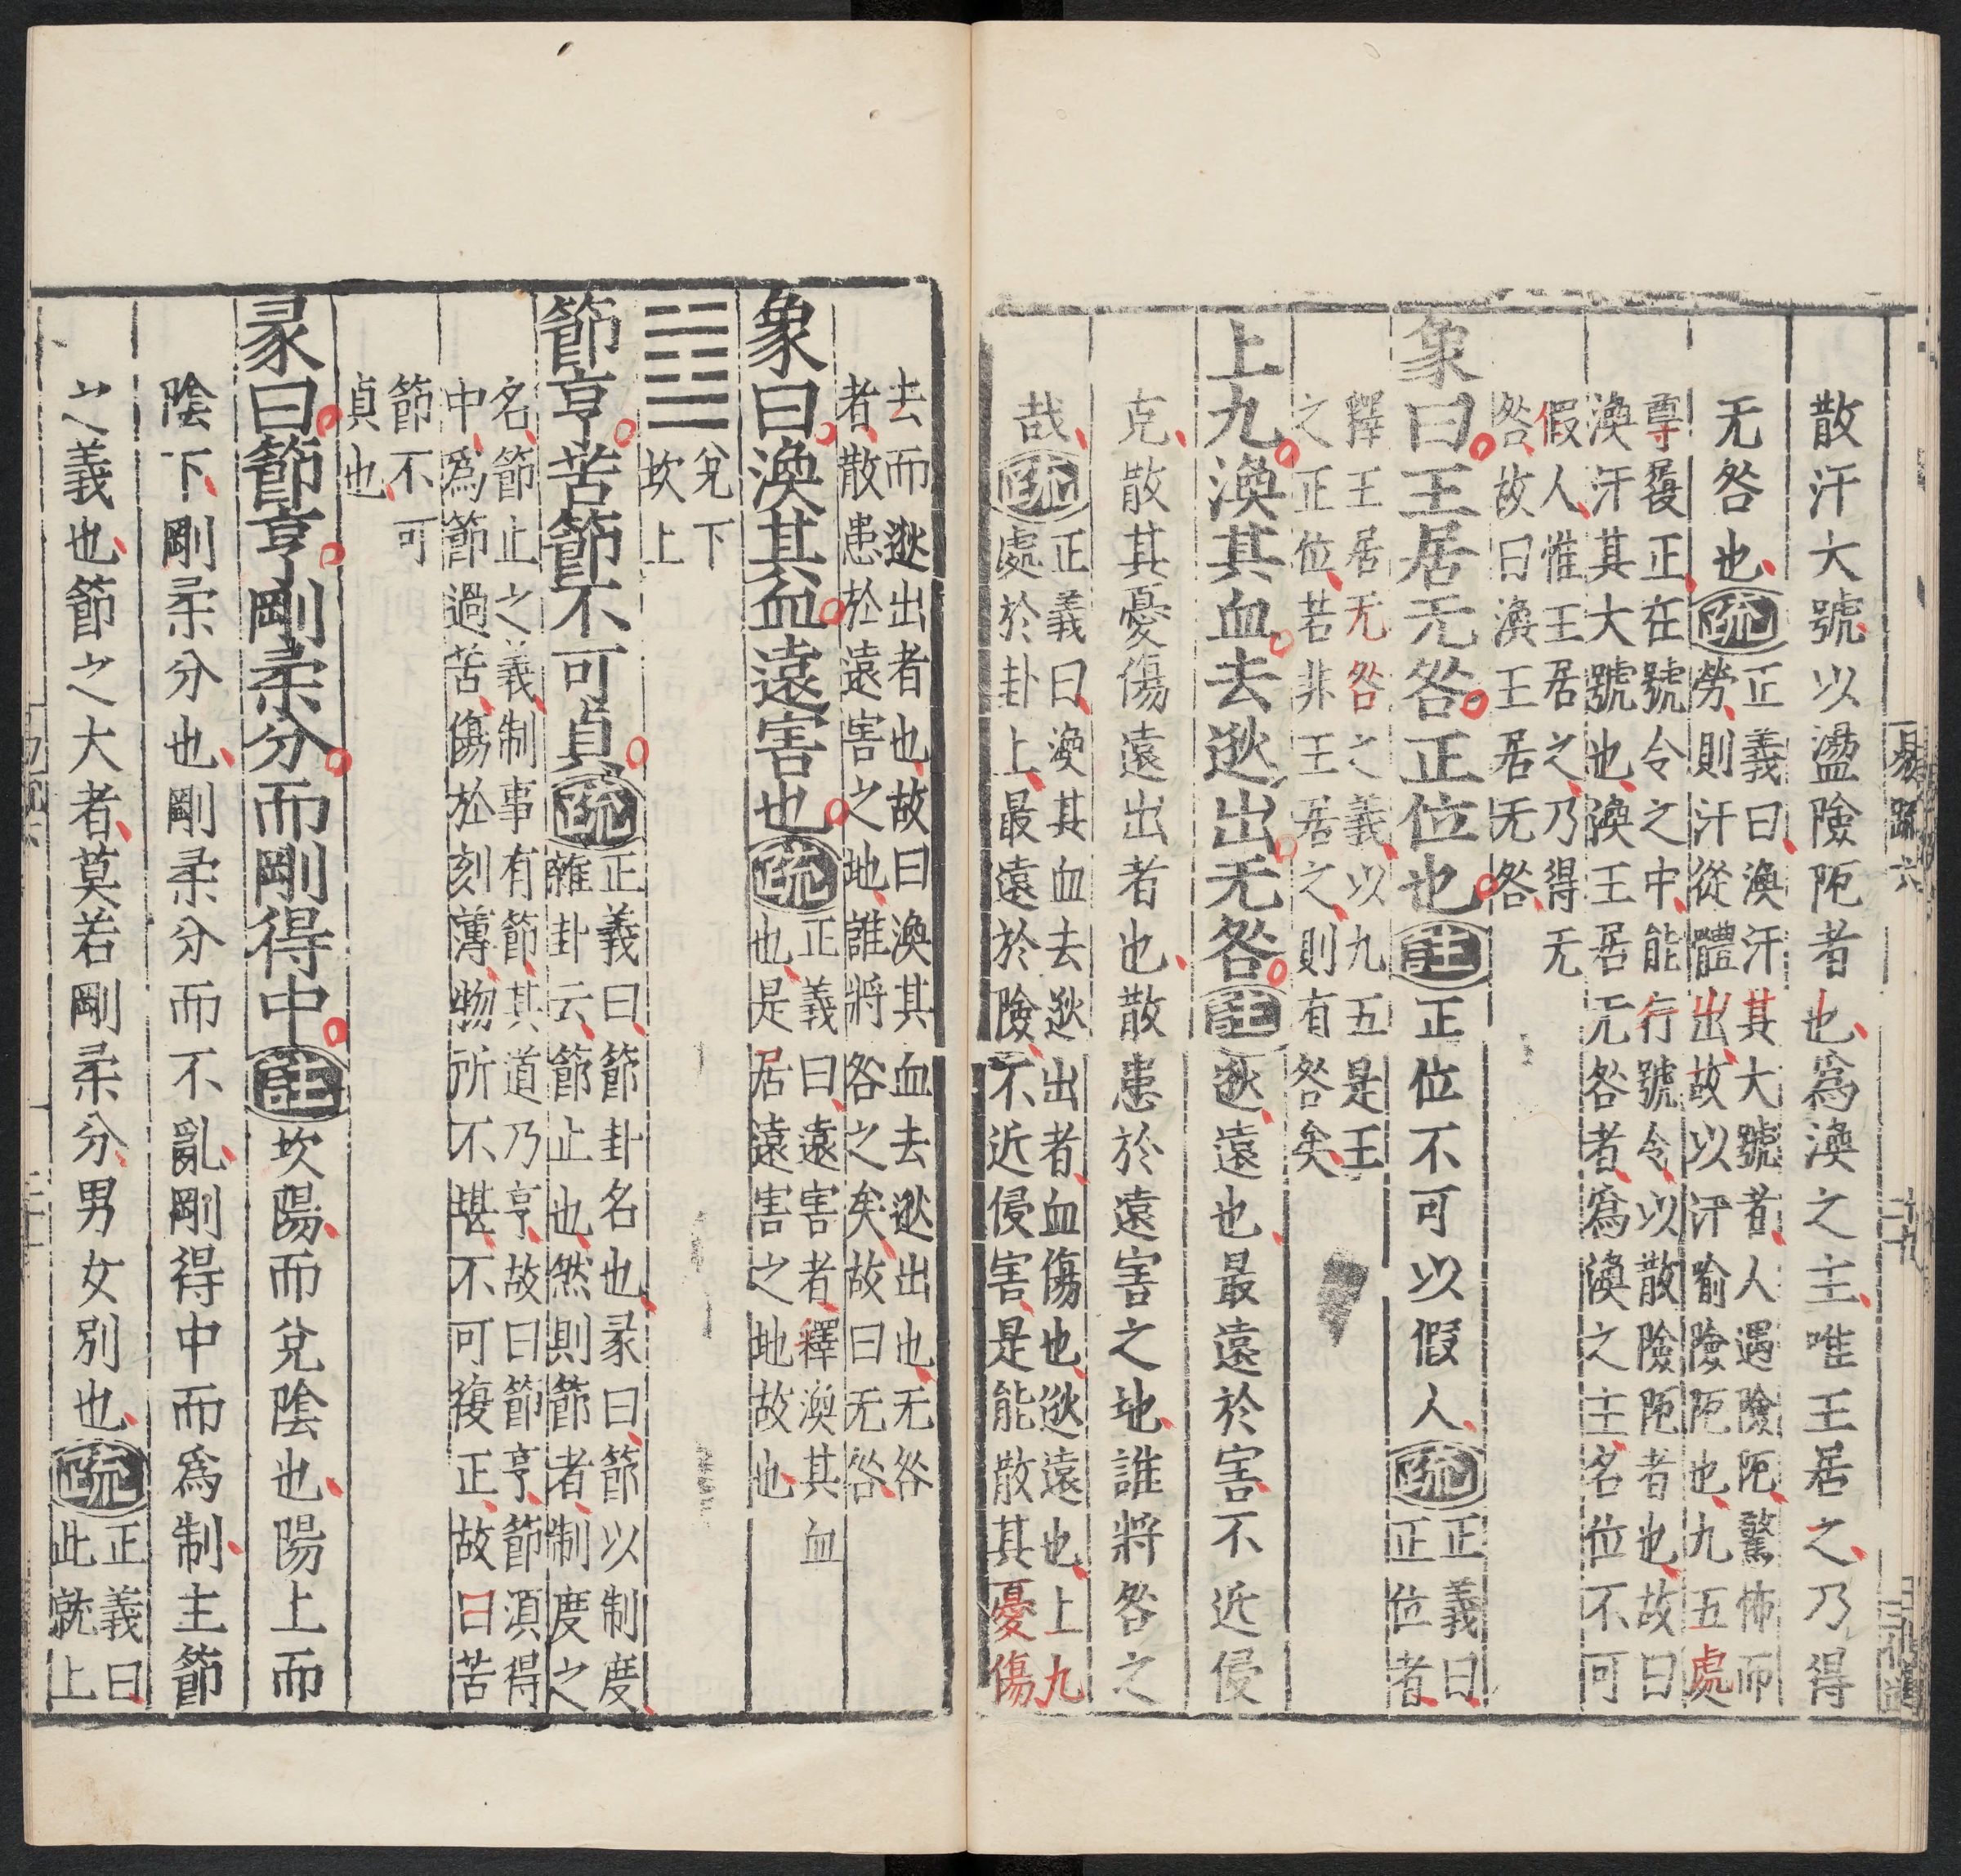 易疏六
二十九
散汗大號以盪險阨者也爲渙之主唯王居之乃得
无咎也疏正義曰渙汗其大號者人遇險阨驚怖而
勞則汗從體出故以汗喻險阨也九五處
尊履正在號令之中能行號令以散險阨者也故曰
渙汗其大號也渙王居无咎者爲渙之主名位不可
假人惟王居之乃得无
咎故曰渙王居无咎
象曰王居无咎正位也註正位不可以假人疏正義曰
正位者
釋王居无咎之義以九五是王
之正位若非王居之則有咎矣
上九渙其血去逖出无咎註逖遠也最遠於害不近侵
克散其憂傷遠出者也散患於遠害之地誰將咎之
哉疏正義曰渙其血去逖出者血傷也逖遠也上九
處於卦上最遠於險不近侵害是能散其憂傷
去而逖出者也故曰渙其血去逖出也无咎
者散患於遠害之地誰將咎之矣故曰无咎
象曰渙其血遠害也疏正義曰遠害者釋渙其血
也是居遠害之地故也
兌下
坎上
節亨苦節不可貞疏正義曰節卦名也彖曰節以制度
雜卦云節止也然則節者制度之
名節止之義制事有節其道乃亨故曰節亨節須得
中爲節過苦傷於刻薄物所不堪不可復正故曰苦
節不可
貞也
彖曰節亨剛柔分而剛得中註坎陽而兌陰也陽上而
陰下剛柔分也剛柔分而不亂剛得中而爲制主節
之義也節之大者莫若剛柔分男女別也疏正義曰
此就上